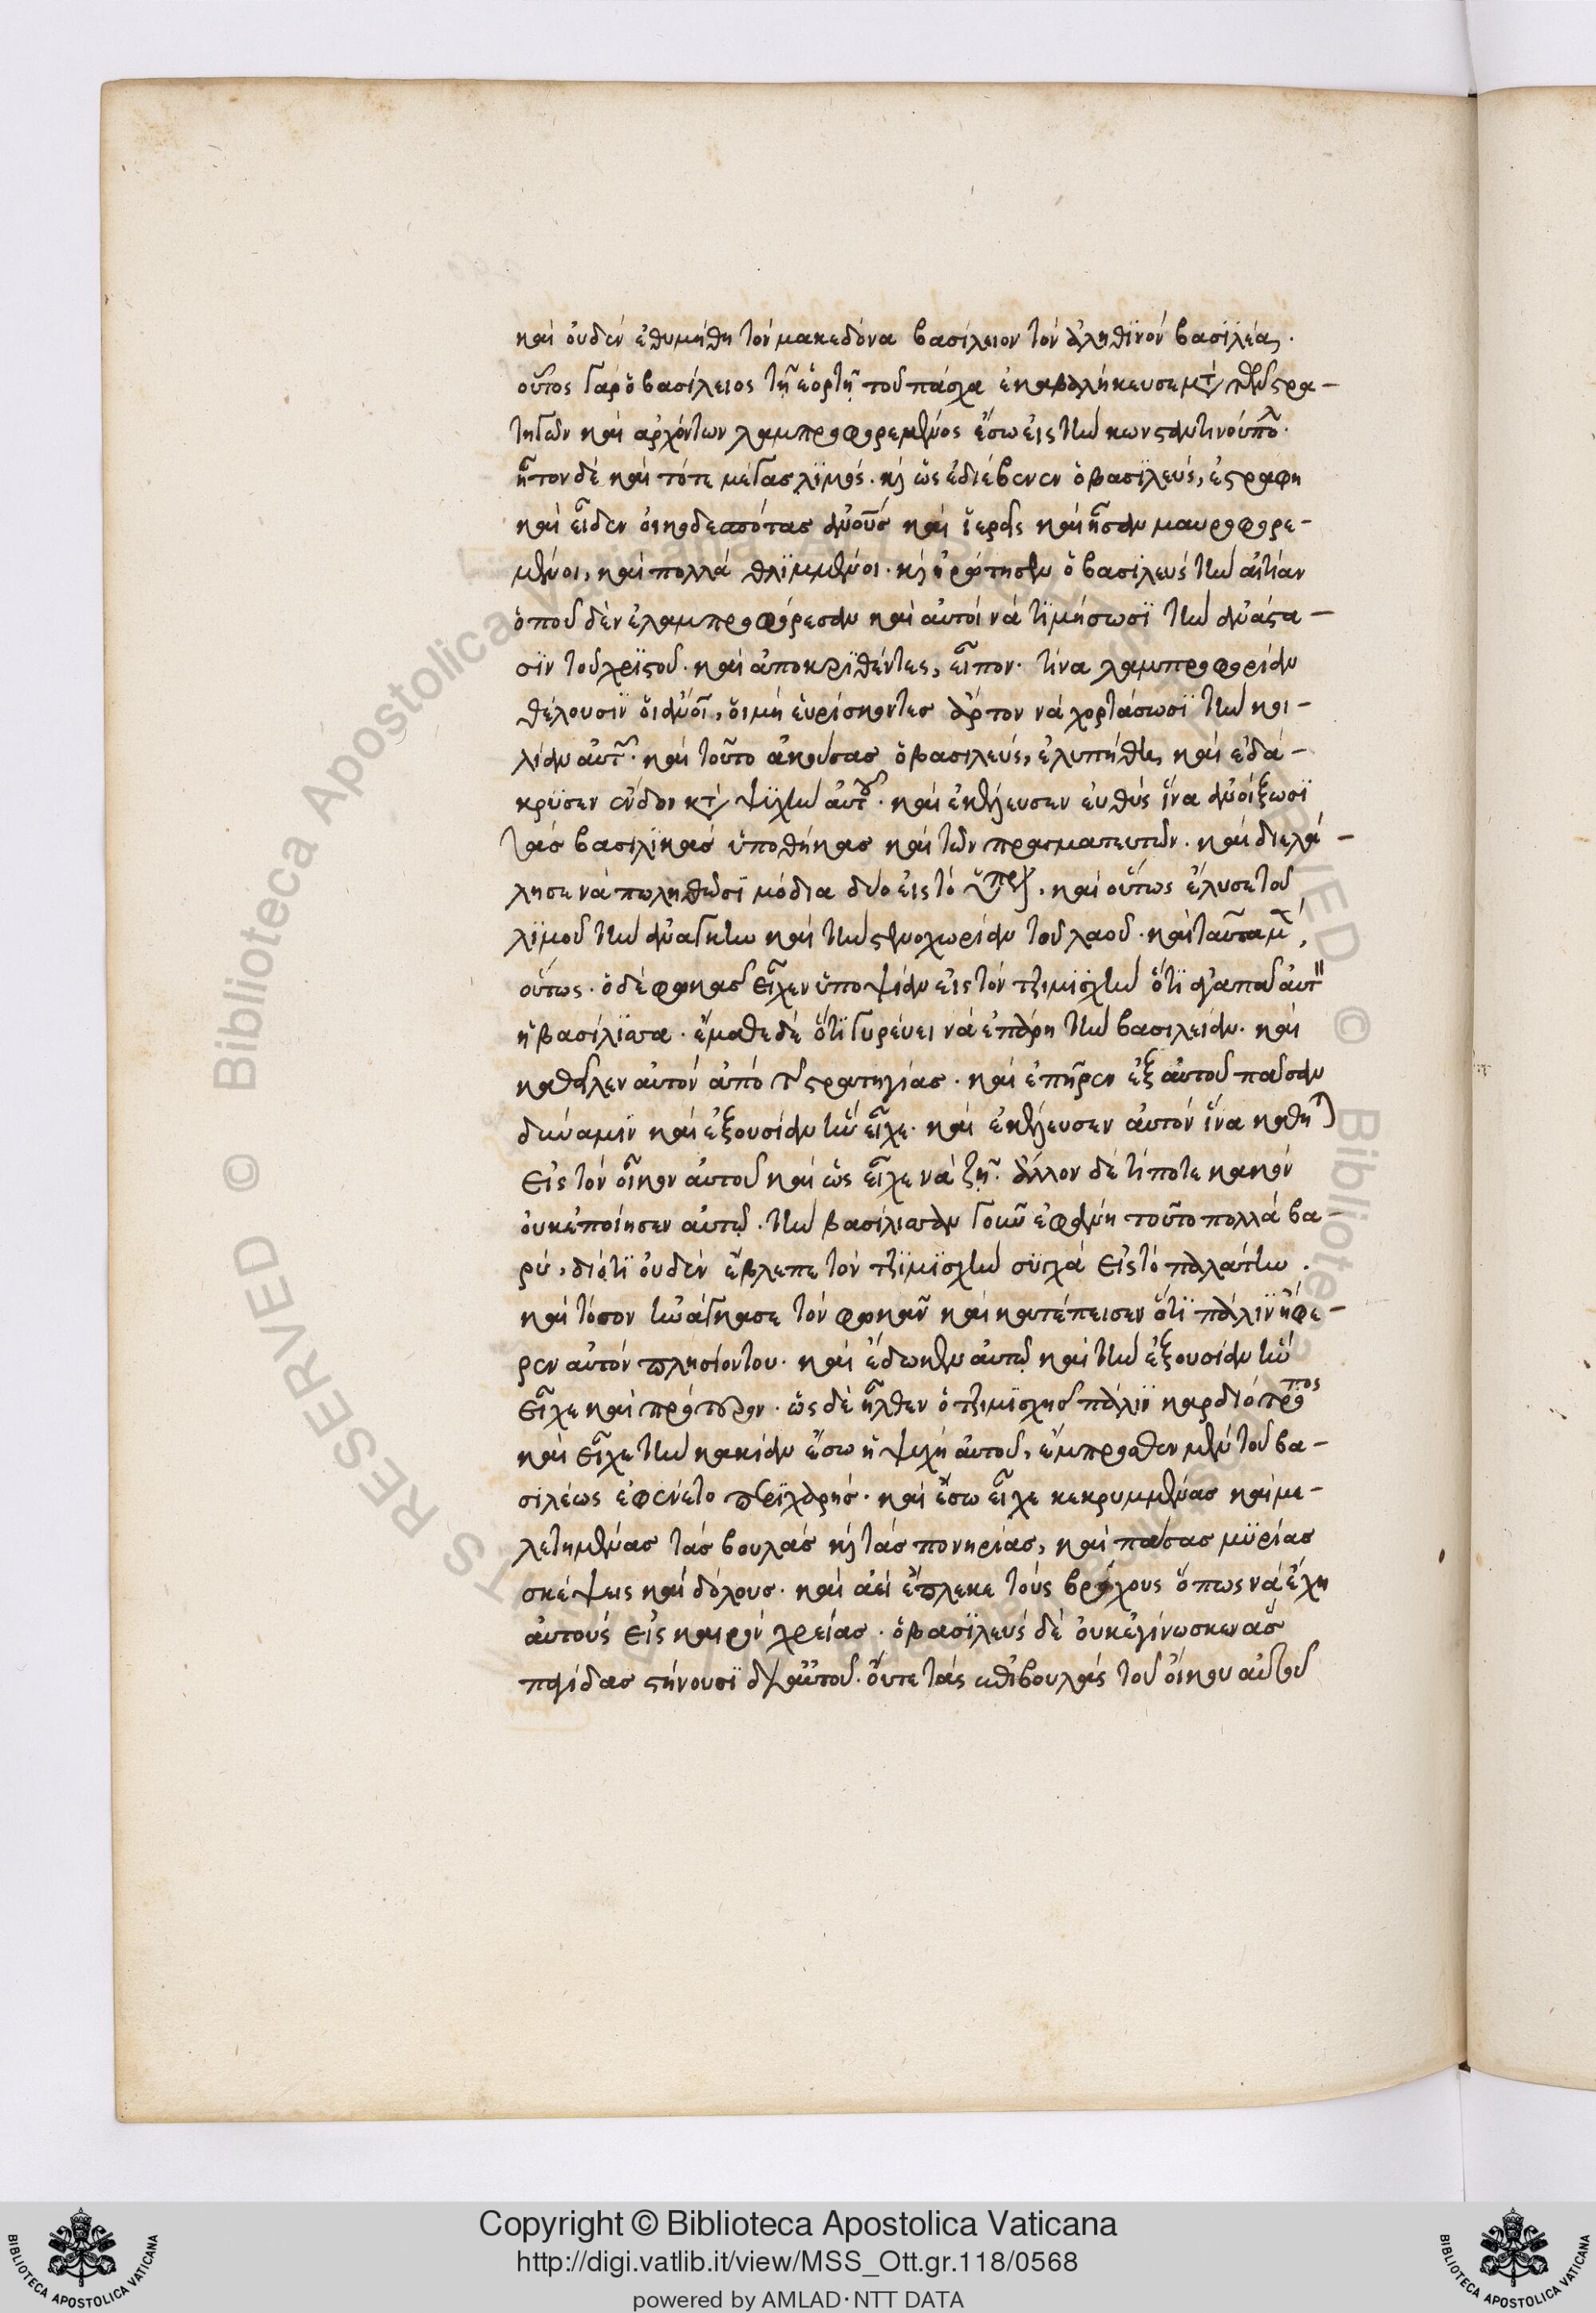 καὶ οὐδὲν ἐθυμήθη τὸν μακεδόνα βασίλειον τὸν ἀληθϊνὸν βασϊλέα.
οὗτος γὰρ ὁ βασίλειος τῇ ἑορτῇ τοῦ πάσχα ἐκαβαλλήκευσε μετὰ τῶν στρα-
τηγῶν καὶ ἀρχόντων λαμπροφορεμένος ἔσω εἰς τὴν κωνσταντινούπολ
ἦτον δὲ καὶ τότε μέγας λϊμός. καὶ ὡς ἐδιέβενεν ὁ βασϊλεύς, ἐστράφη
καὶ εἶδεν οἰκοδεσπότας ἀνους καὶ ἱερεῖς καὶ ἦσαν μαυροφορε-
μένοι, καὶ πολλὰ θλϊμμένοι. καὶ ἐρώτησεν ὁ βασιλεὺς τὴν αἰτίαν
ὁποῦ δὲν ἐλαμπροφόρεσαν καὶ αὐτοὶ νὰ τϊμήσωσϊ τὴν ἀνάστα-
σϊν τοῦ χρϊστοῦ. καὶ ἀποκρϊθέντες, εἶπον. τίνα λαμπροφορίαν
θέλουσϊν οἱ ἀνοι, οἱ μὴ εὑρίσκοντες ἄρτον νὰ χορτάσωσϊ τὴν κοι-
λίαν αὐτῶν. καὶ τοῦτο ἀκούσας ὁ βασιλεύς, ἐλυπήθη, καὶ ἐδά-
κρϋσεν ἔνδον κατὰ ψϋχὴν αὐτοῦ. καὶ ἐκέλευσεν εὐθὺς ἵνα ἀνοίξωσϊ
τὰς βασιλϊκὰς ὑποθήκας καὶ τῶν πραγματευτῶν. καὶ διελά-
λησε νὰ πωληθῶσϊ μόδια δύο εἰς τὸ ὑπρ. καὶ οὕτως ἔλυσε τοῦ
λϊμοῦ τὴν ἀνάγκην καὶ τὴν στενοχωρίαν τοῦ λαοῦ. καὶ ταῦτα μὲν
οὕτως. ὁ δὲ φωκᾶς εἶχεν ὑποψίαν εἰς τὸν τζιμϊσχὴν ὅτϊ ἀγαπᾶ αὐτὸν
ἡ βασίλϊσσα. ἔμαθε δὲ ὅτϊ γυρεύει νὰ ἐπάρη τὴν βασιλείαν. καὶ
καθεῖλεν αὐτὸν ἀπὸ τῆς στρατηγίας. καὶ ἐπῆρεν ἐξ αὐτοῦ πᾶσαν
δύναμϊν καὶ ἐξουσίαν ἣν εἶχε. καὶ ἐκέλευσεν αὐτὸν ἵνα καθη
εἰς τὸν οἶκον αὐτοῦ καὶ ὡς εἶχε νὰ ζῇ. ἄλλον δὲ τίποτε κακὸν
οὐκ ἐποίησεν αὐτῷ. τὴν βασίλισσαν γοῦν ἐφάνη τοῦτο πολλὰ βα-
ρύ, διότϊ οὐδὲν ἔβλεπε τὸν τζϊμϊσχὴν σϋχνὰ εἰς τὸ παλάτιον.
καὶ τόσον ἠνάγκασε τὸν φωκᾶν καὶ κατέπεισεν ὅτϊ πάλϊν ἤφε-
ρεν αὐτὸν πλησίον του. καὶ ἔδωκεν αὐτῷ καὶ τὴν ἐξουσίαν ἣν
εἶχε καὶ πρότερον. ὡς δὲ ἦλθεν ὁ τζιμϊσχῆς πάλϊν καρδιόπρωπος
καὶ εἶχε τὴν κακίαν ἔσω ἡ ψυχὴ αὐτοῦ, ἔμπροσθεν μὲν τοῦ βα-
σϊλέως ἐφένετο περϊχαρής. καὶ ἔσω εἶχε κεκρυμμένας καὶ με-
λετημένας τὰς βουλὰς καὶ τὰς πονηρίας, καὶ πάσας μϋρίας
σκέψεις καὶ δόλους. καὶ ἀεὶ ἔπλεκε τοὺς βρόχους ὅπως νὰ ἔχη
αὐτοὺς εἰς καιρὸν χρείας. ὁ βασϊλεὺς δὲ οὐκ ἐγίνωσκεν ἃς
παγίδας στήνουσϊ δι' αὐτοῦ. οὔτε τὰς ἐπιβουλὰς τοῦ οἴκου αὐτοῦ